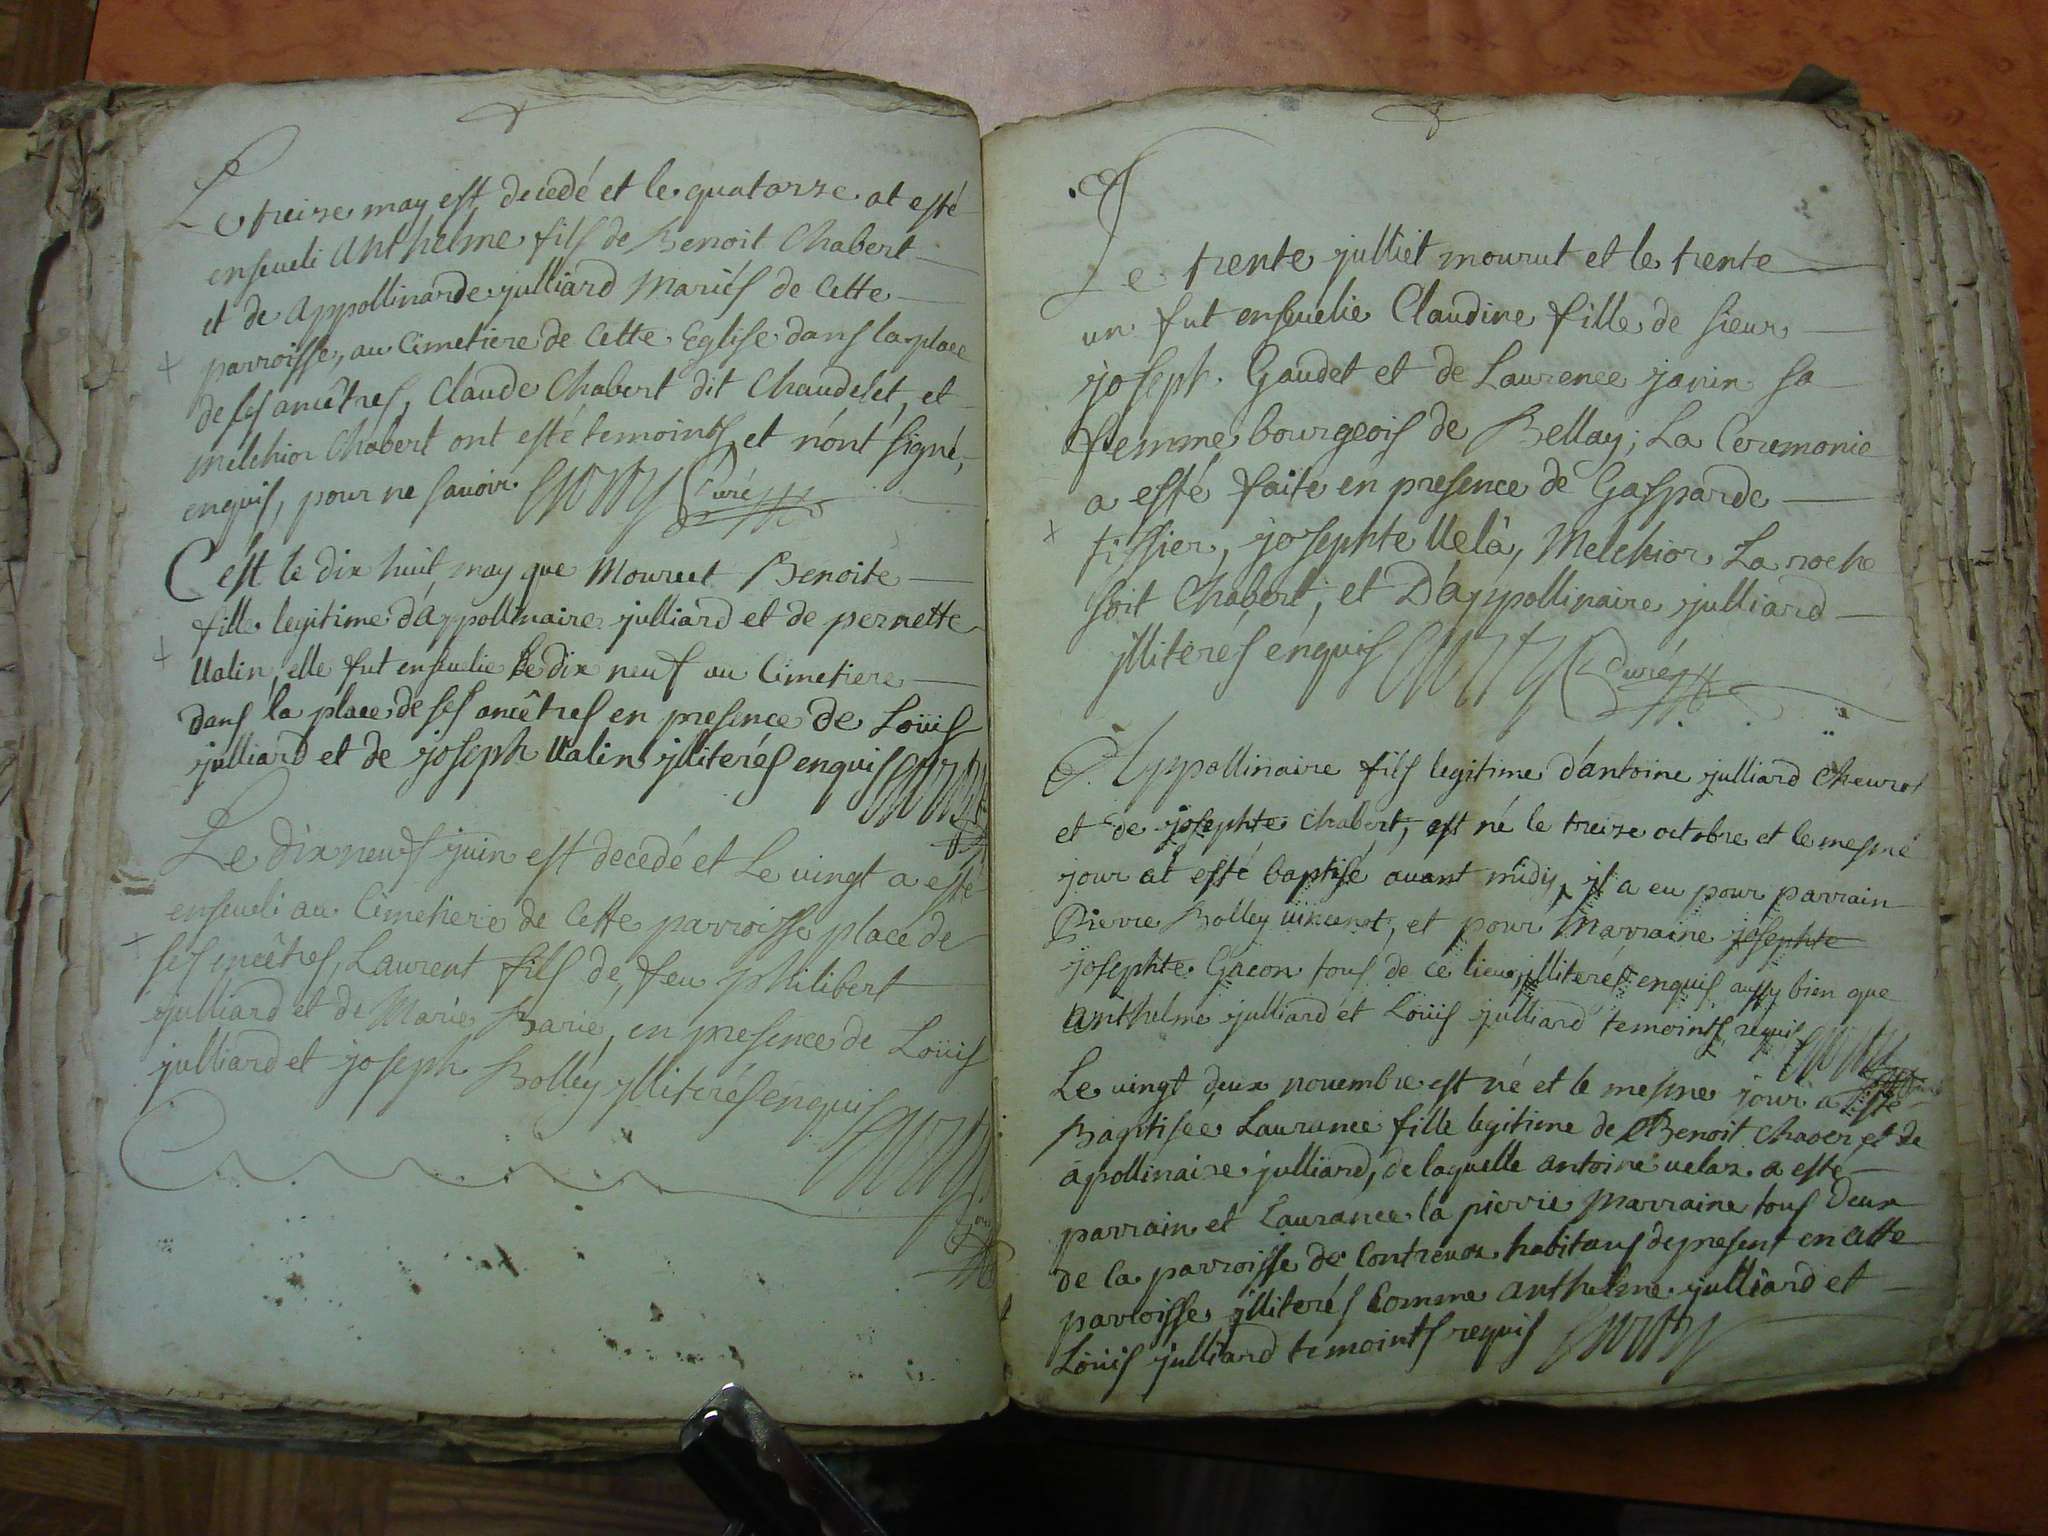 Le treize may est decedé et le quatorze at esté
enseueli Anthelme fils de Benoit Chabert
et de Appollinarde julliard Mariés de Cette
parroisse, au Cimetiere de Cette Eglise dans la place
de ses ancêtres, Claude Chabert dit Chaudelet, et
Melchior Chabert ont esté temoints, et n'ont signé,
enquis, pour ne sauoir Curé
C'est le dix huit may que Mourut Benoite
fille legitime d'appollinaire julliard et de pernette
Ualin, elle fut enseuelie le dix neuf au Cimetiere
dans la place de ses ancêtres en presence de Loüis
julliard et de joseph Ualin jlliterés enquis
Le dix neuf juin est decedé et Le uingt a esté
enseueli au Cimetiere de Cette parroisse place de
ses ancêtres, Laurent fils de feu philibert
julliard et de Marie Barié, en presence de Loüis
julliard et joseph Bolley jlliterés enquis
Le trente julliet mourut et le trente
un fut enseuelie Claudine fille de sieur
joseph Gaudet et de Laurence janin sa
femme bourgeois de Bellay; La Ceremonie
a esté faite en presence de Gasparde
tissier, josephte Uelâ, Melchior La roche
soit Chabert, et D'appollinaire julliard
jlliterés enquis Curé
Appollinaire fils legitime d'antoine julliard Cheurot
et de josephte Chabert, est né le treize octobre et le mesme
jour at esté baptisé auant midy, jl a eu pour parrain
Pierre Bolley uincent, et pour Marraine josephte
josephte Gacon tous de ce lieu, jlliterés enquis aussy bien que
anthelme julliard et Loüis julliard temoints requis
Le uingt deux nouembre est né et le mesme jour a esté
Baptisée Laurance fille legitime de Benoit Chaber et de
apollinaire julliard, de laquelle antoine uelaz a esté
parrain et Laurance la pierre Marraine tous deux
de la parroisse de Contreuoz habitans de present en Cette
parroisse jlliterés Comme anthelme julliard et
Loüis julliard temoints requis